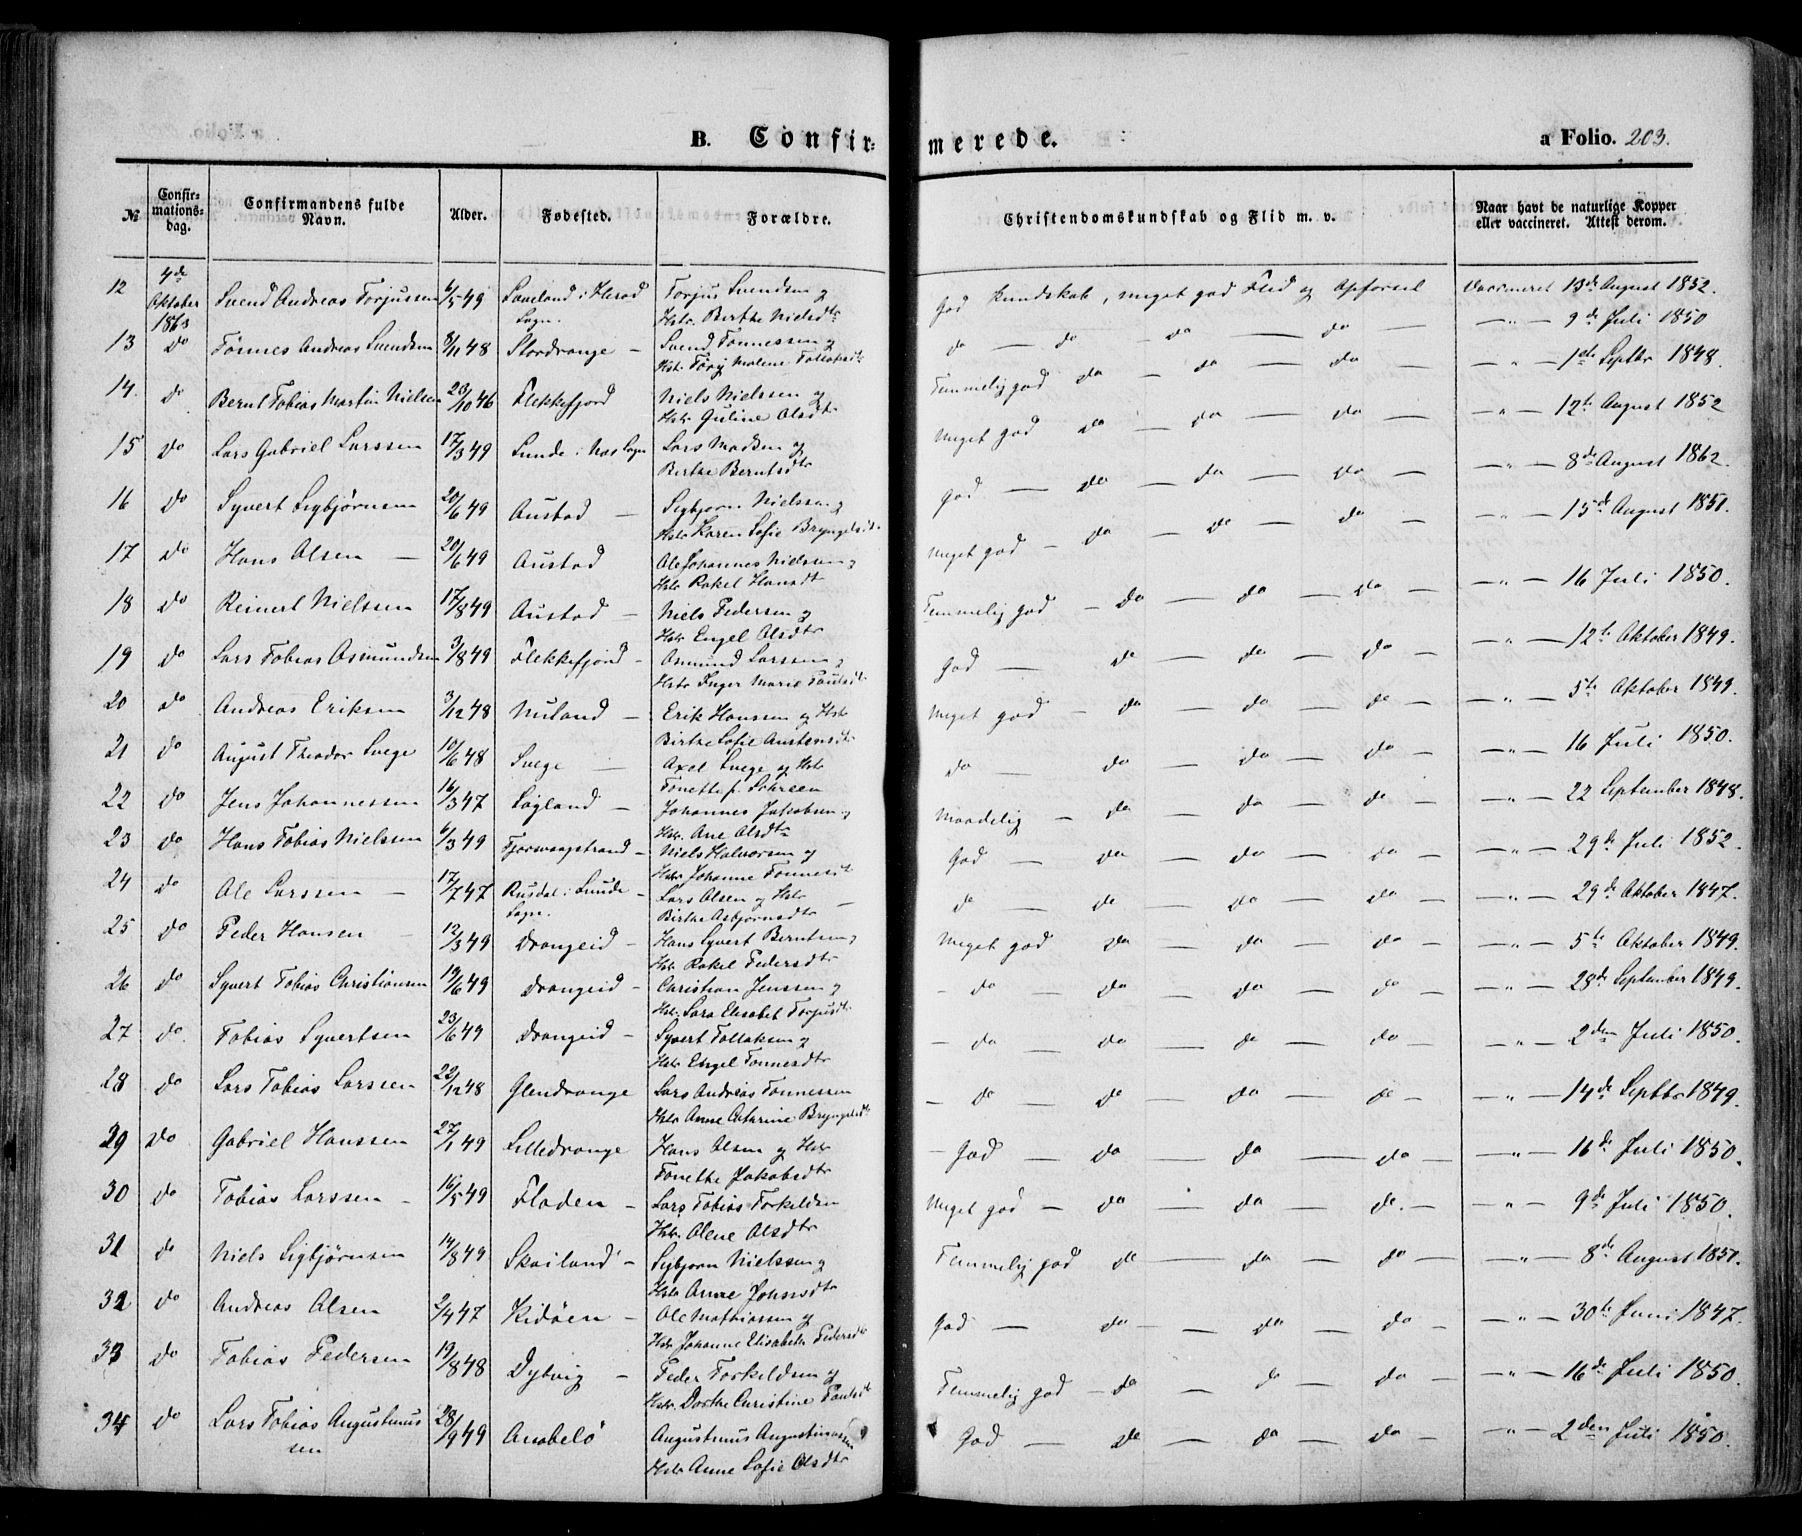 B. Confir-merede. a Folio. 203.
№ Confir-mations-dag. Confirmandens fulde Navn. Alder. Fødested. Forældre. Christendomskundskab og Flid m. v. Naar havt de naturlige Kopper eller vaccineret. Attest derom.
12 4de Oktober 1863 Svend Andreas Torjussen 6/5 49 Laveland i Herad Sogn. Torjus Svendsen og Hstr. Birthe Nielsdtr God Kundskab, meget god Flid og Opførsel Vaccineret 13de August 1852.
13 do Tønnes Andreas Svendsen 8/11 48 Stordrange – Svend Tønnessen og Hstr. Malene do — do — do — do — " — 9de Juli 1850
14. do Bernt Tobias Martin Nielsen 23/10 46 Flekkefjord Niels Nielssen og Hstr Guline Olsdtr Temmelig god do — do — do — " — 1ste Septbr 1848.
15 do Lars Gabriel Larssen 17/3 49 Lunde i Nes Sogn Lars Madsen og Birthe Berntsdtr Meget god do — do — do — " — 12te August 1852
16 do Syvert Sigbjørnsen 20/6 49 Austad — Sigbjørn Nielssen og Hstr Karen Sofie Bryngelsdtr God — do — do — do — " — 8de August 1862.
17 do Hans Olsen — 20/6 49 Austad Ole Johannes Nielssen og Hstr Rakel Hansdtr Meget god — do — do — do — " — 15de August 1851.
18 do Reinert Nielsen 17/8 49 Austad — Niels Pedersen og Hstr Engel Olsdtr Temmelig god — do — do — do — " — 16 Juli 1850.
19 do Lars Tobias Asmundsen 3/8 49 Flekkefjord – Asmund Larssen og Hstr Inger Marie Paulsdtr God — do — do — do — " — 12te Oktober 1849.
20 do Andreas Eriksen 3/12 48 Nuland — Erik Hanssen og Hstr Birthe Sofie Austensdtr Meget god — do — do — do — " — 5te Oktober 1849.
21 do August Theodor Svege 10/6 48 Svege — Axel Svege og Hstr Tonette f. do — do — do — do — " — 16 Juli 1850.
22 do Jens Johannessen 16/3 47 Søgland — Johannes Jakobsen og Hstr. Ane Olsdtr Maadelig — do — do — do — " — 22 September 1848.
23 do Hans Tobias Nielssen 6/3 49 — Niels Halvorsen og Hstr Johanne Tønnesdtr God — do — do — do — " — 29de Juli 1852.
24 do Ole Larssen — 17/7 47 Rusdal i Lunde Sogn. Lars Olsen og Hstr Birthe Asbjørnsdtr — do — do — do — do — " — 29de Oktober 1847.
25 do Peder Hansen — 12/3 49 Drangeid – Hans Syvert Berntsen og Hstr Rakel Pedersdtr Meget god do — do — do — " — 5te Oktober 1849.
26 do Syvert Tobias Christiansen 19/6 49 Drangeid – Christian Jenssen og Hstr. Sara Elisabet Torjusdtr – do — do — do — do — " — 28de September 1849.
27 do. Tobias Syvertsen 23/6 49 Drangeid – Syvert Tollaksen og Hstr Engel Tønnesdtr – do — do — do — do — " — 2den Juli 1850.
28 do Lars Tobias Larssen 22/12 48 Glendrange Lars Andreas Tønnessen Hstr Anne Cathrine Bryngelsdtr – do — do — do — do — " — 14de Septbr 1849.
29 do Gabriel Hanssen 27/1 49 Lilledrange Hans Olsen og Hstr Tonette Jakobsdtr – God — do — do — do — " — 16de Juli 1850.
30 do Tobias Larssen – 16/5 49 Fladen – Lars Tobias Torkeldsen Hstr. Olene Olsdtr Meget god — do — do — do. — " — 9de Juli 1850.
31 do Niels Sigbjørnsen 14/8 49 Skailand – Sigbjørn Nielssen og Hstr Anne Johnsdtr Temmelig god do — do — do — " — 8de August 1851.
32 do Andreas Olsen 2/4 47 Kidøen – Ole Mathiassen og Hstr Johanne Elisabeth Pedersdtr God — do — do — do — " — 30te Juni 1847.
33 do Tobias Pedersen 19/8 48 Dybvig – Peder Torkeldsen og Hstr. Dorthe Christine Paulsdtr Temmelig god – do — do — do — " — 16de Juli 1850.
34 do Lars Tobias Augustinussen 28/9 49 Anabelø Augustinus Augustinussen Hstr Anne Sofie Olsdtr God — do — do — do — " — 2den Juli 1850.